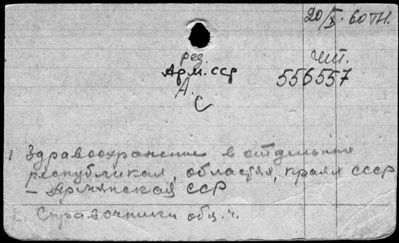 20/X. 60 тн.
рез. чит.
Арм. сср 556557
А.
С
1 Здравоохранение в отдельных
республиках, областях, краях СССР
– Армянская ССР
2. Справочники общ. ч.